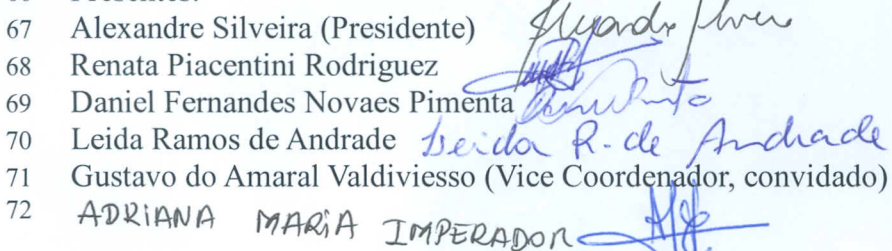 67 Alexandre Silveira (Presidente)
68 Renata Piacentini Rodriguez
69 Daniel Fernandes Novaes Pimenta
70 Leida Ramos de Andrade Leida R. de Andrade
71 Gustavo do Amaral Valdiviesso (Vice Coordenador, convidado)
72 ADRIANA MARIA IMPERADOR